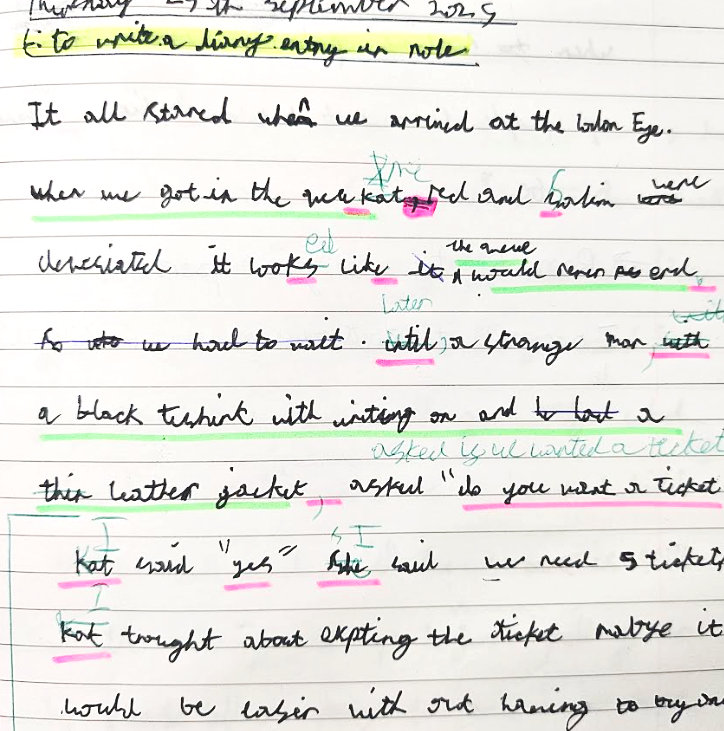 Thursday 25th September 2025
L: to write a diary entry in role.
It all starred when we arrived at the lodon Eye.
when we got in the queue Kat, Ted and Salim were
it looks like the queue would never end.
So we had to wait. until, a strange man with
Later
a black teshirt with writing on and he had a
asked is we wanted a ticket
thin leather jacket, asked "do you want a ticket
I
Kat said "yes" She said we need 5 tickets
I
Kat trought about exepting the ticket mabye it
would be easier with out having to